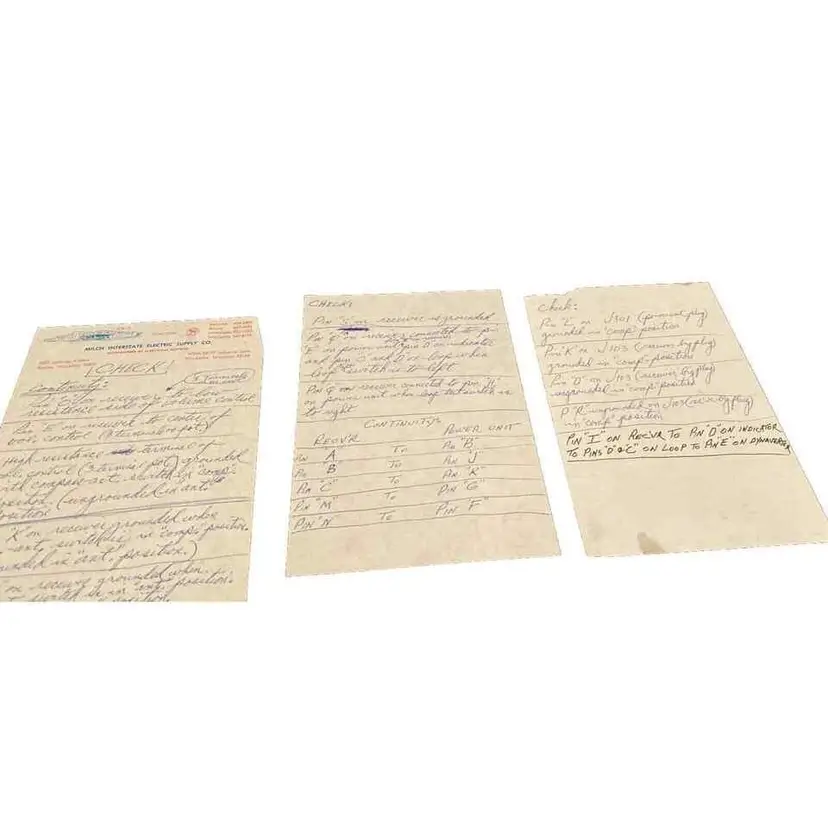 MILCH INTERSTATE ELECTRIC SUPPLY CO.
CHECK!
Continuity:
receiver to low
resistance side of volume control
Pin "E" on receiver to center of
vol. control (3 terminal pot)
High resistance terminal of
control (3 terminal pot) grounded
with comp-ant. switch in "comp"
position. (ungrounded in "ant."
position
"K" on receiver grounded when
ant. switch is in "comp." position.
in "ant." position.)
on receiver grounded when
switch is in "ant." position.
CHECK!
Pin "S" on receiver is grounded
Pin G on receiver connected to pin
I on power unit, pin D on indicator
and pin C and D on loop when
loop switch is to left
Pin G on receiver connected to pin "H"
on power unit when loop switch is
to right
CONTINUITY
RECV'R POWER UNIT
PIN A TO PIN "B"
PIN B TO PIN "J"
PIN "C" TO PIN "K"
PIN "M" TO PIN "G"
PIN "N" TO PIN F"
Check:
Pin "L" on J101 (plug)
grounded in "comp" position
Pin "K" on J103 (receiver plug)
grounded in "comp" position
Pin "D" on J103 (receiver plug)
ungrounded in "comp" position
P "R" ungrounded on J103 plug)
in "comp" position
PIN "I" ON RECVR TO PIN "D" ON INDICATOR
TO PINS "D" & "C" ON LOOP TO PIN "E" ON DYNAVERTER